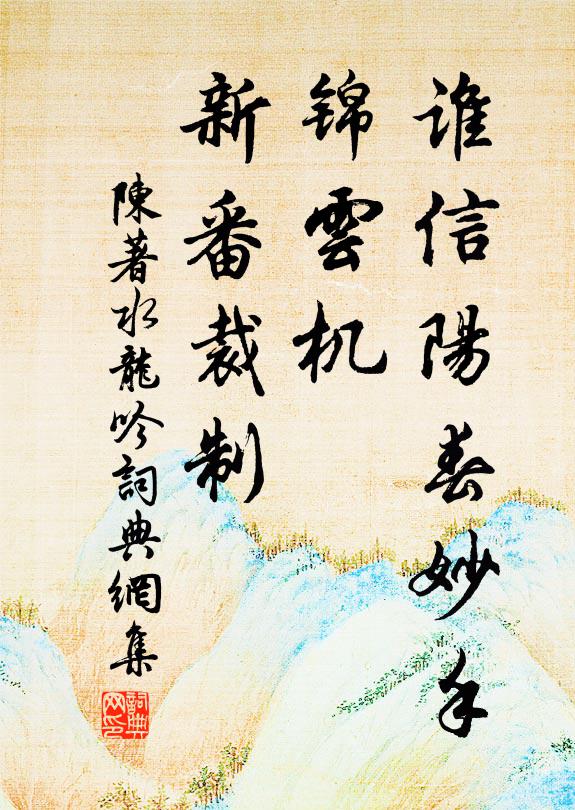 谁信陽春妙手
锦雲机
新番裁制
陳著水龍吟詞典網集
詞典网印